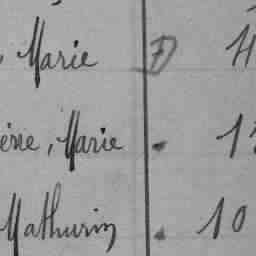 , Marie
ère, Marie . 1
Mathurin . 10